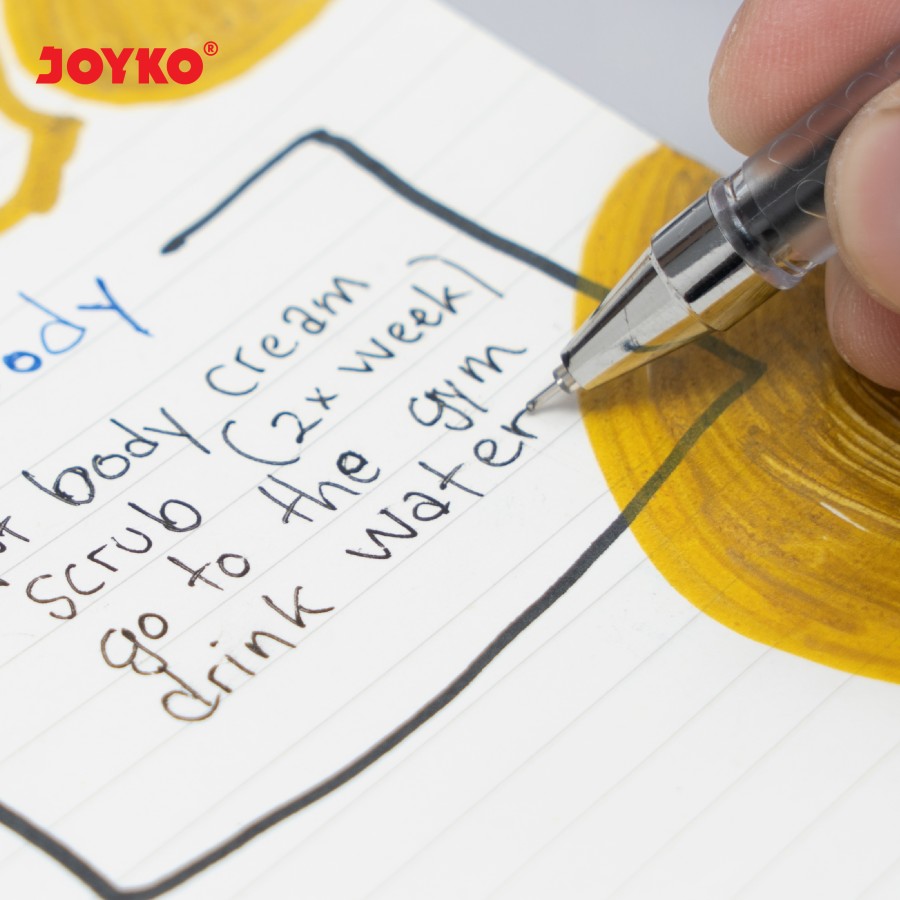 JOYKO®
ody
body cream
scrub (2x week)
go to the gym
drink water